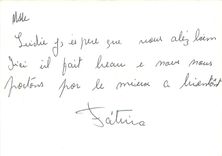 Mlle
Lundie js espere que vous alez bien
Ici il fait beau e nous nous
portons por le mieux a bientot
Fátima